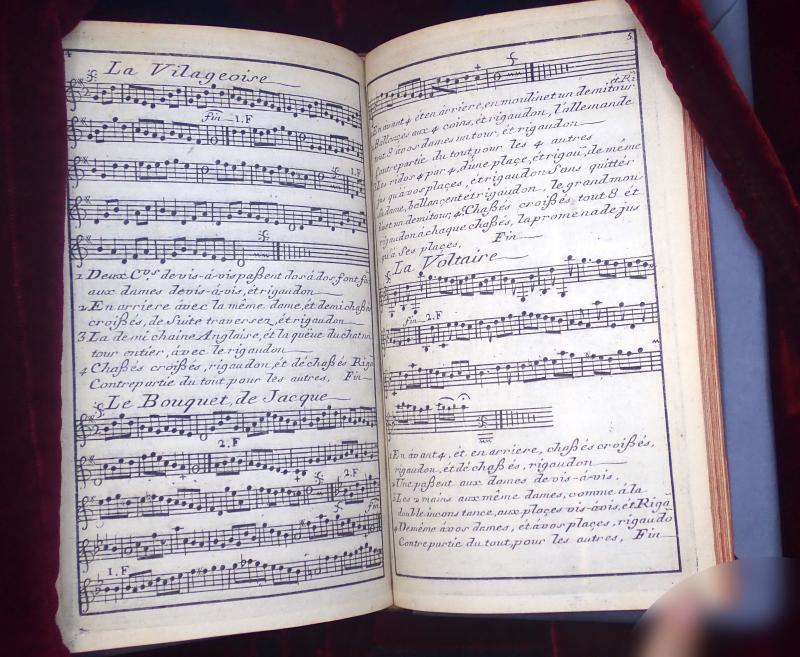 4
La Vilageoise
fin 1.F
1.F
1 Deux C.vs de vis-á-vis paßent dos á dos font
aux dames de vis-á-vis, ét rigaudon
2 En arriere ávec la même dame, ét demi chaßé
croißés, de Suite traversez, ét rigaudon
3 La demi chaine Anglaise, ét la quëue du chat un
tour entier, ávec le rigaudon
4 Chaßés croißés, rigaudon, ét dé chaßés Riga
Contrepartie du tout, pour les autres, Fin
Le Bouquet, de Jacque
2.F
2.F
fin
1.F
5
ét Ri
En avant 4 ét en arriere, en moulinet un demi tour
Ballançés aux 4 coins, ét rigaudon, l'allemande
tout 8 á vos dames un tour, ét rigaudon
Contrepartie du tout pour les 4 autres
Les ridos 4 par 4, d'une plaçe, ét rigau, de même
jus qu'á vos plaçes, ét rigaudon Sans quittér
Sa dame, ballançent ét rigaudon, le grand mou
linet un demi tour, 4 Chaßés croißés tout 8 ét
rigaudon á chaque chaßés, la promenade jus
qu'á Ses plaçes, Fin
La Voltaire
fin 2.F
1 En avant 4, ét en arriere, chaßés croißés,
rigaudon, ét dé chaßés, rigaudon
2 Une paßent aux dames de vis-á-vis.
3 Les 2 mains aux même dames, comme á la
double incons tance, aux plaçes vis-avis, ét Riga
4 De même á vos dames, ét á vos plaçes, rigaudo
Contre partie du tout, pour les autres, Fin